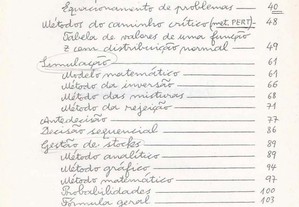 Equacionamento de problemas — 40
Métodos do caminho crítico (met. PERT) - 48
Tabela de valores de uma função
z com distribuição normal — 49
Simulação — 61
Modelo matemático — 61
Método da inversão — 66
Método das misturas — 68
Método da rejeição — 71
Antedecisão — 77
Decisão sequencial — 86
Gestão de stocks — 89
Método analítico — 89
Método gráfico — 94
Método matemático — 97
Probabilidades — 100
Fórmula geral — 103